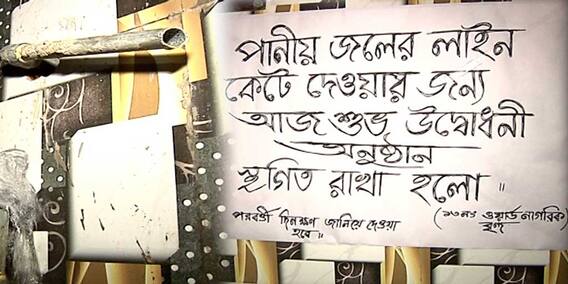 পানীয় জলের লাইন
কেটে দেওয়ার জন্য
আজ শুভ উদ্বোধনী
অনুষ্ঠান
স্থগিত রাখা হলো ॥
পরবর্তী দিনক্ষণ জানিয়ে দেওয়া
হবে ॥
(১৩নং ওয়ার্ড নাগরিক
বৃন্দ)